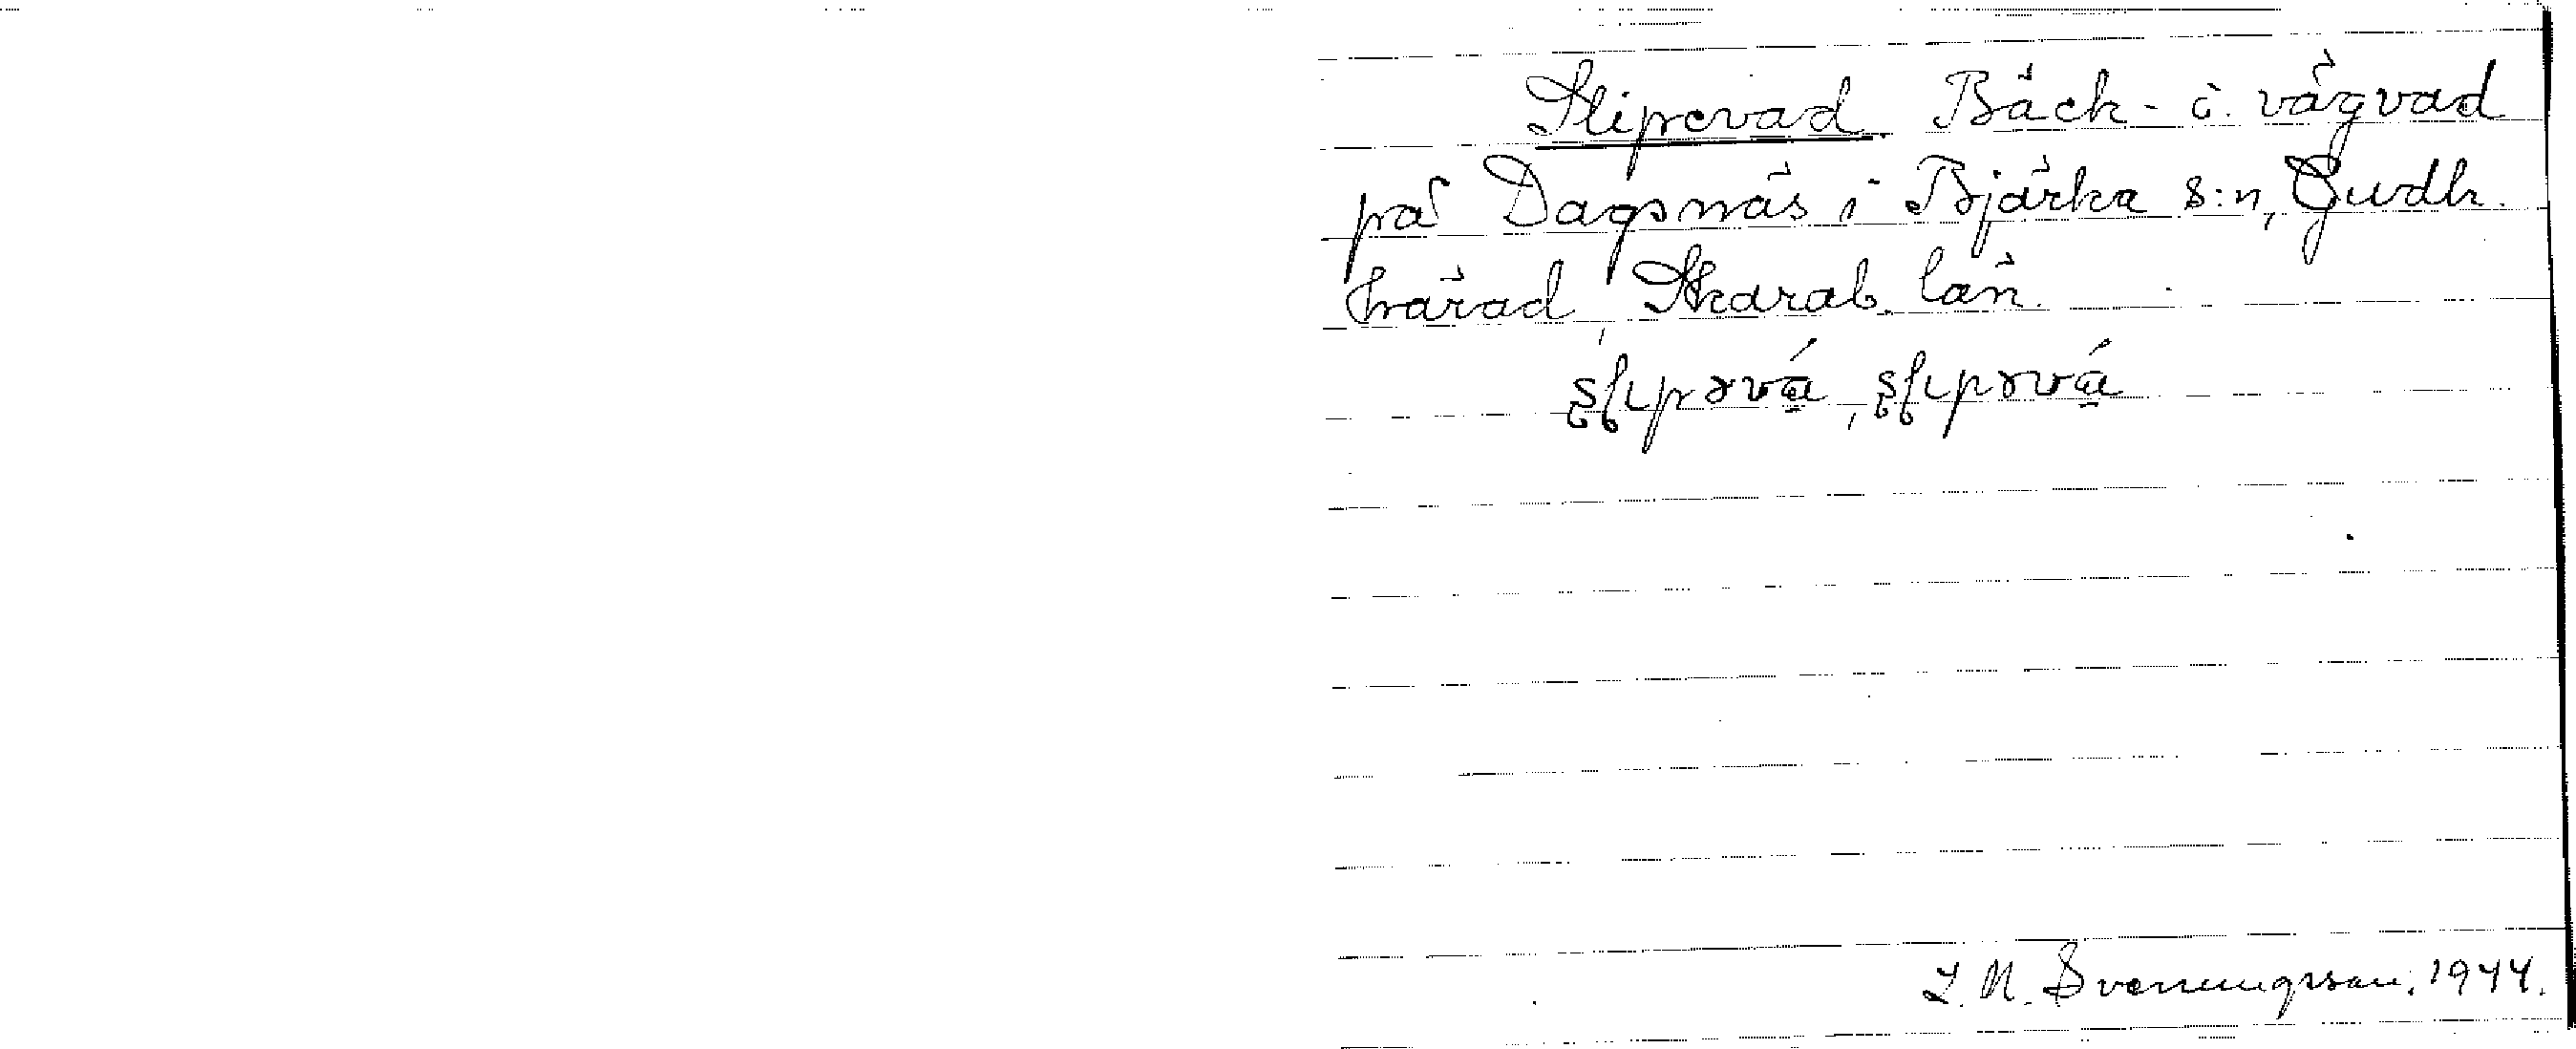 Slipevad. Bäck- o. vägvad
på Dagsnäs i Bjärka s:n, Gudh.
härad, Skarab. län.
J. M. Svenningsson. 1944.